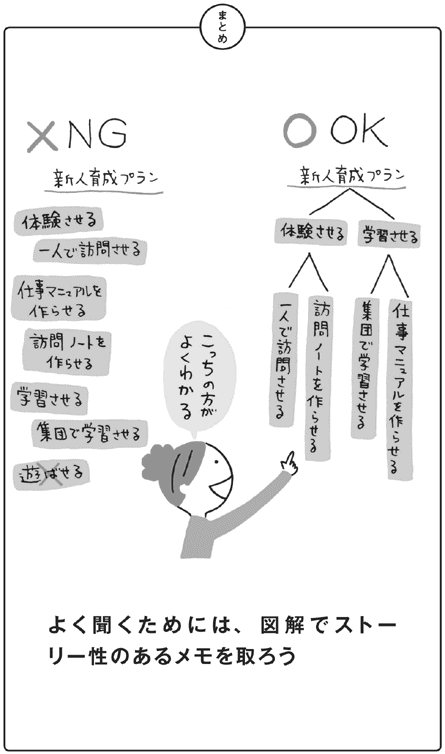 まとめ
×NG
新人育成プラン
体験させる
一人で訪問させる
仕事マニュアルを
作らせる
訪問ノートを
作らせる
学習させる
集団で学習させる
遊ばせる
○OK
新人育成プラン
体験させる
学習させる
一人で訪問させる
訪問ノートを作らせる
集団で学習させる
仕事マニュアルを作らせる
こっちの方が
よくわかる
よく聞くためには、図解でストー
リー性のあるメモを取ろう